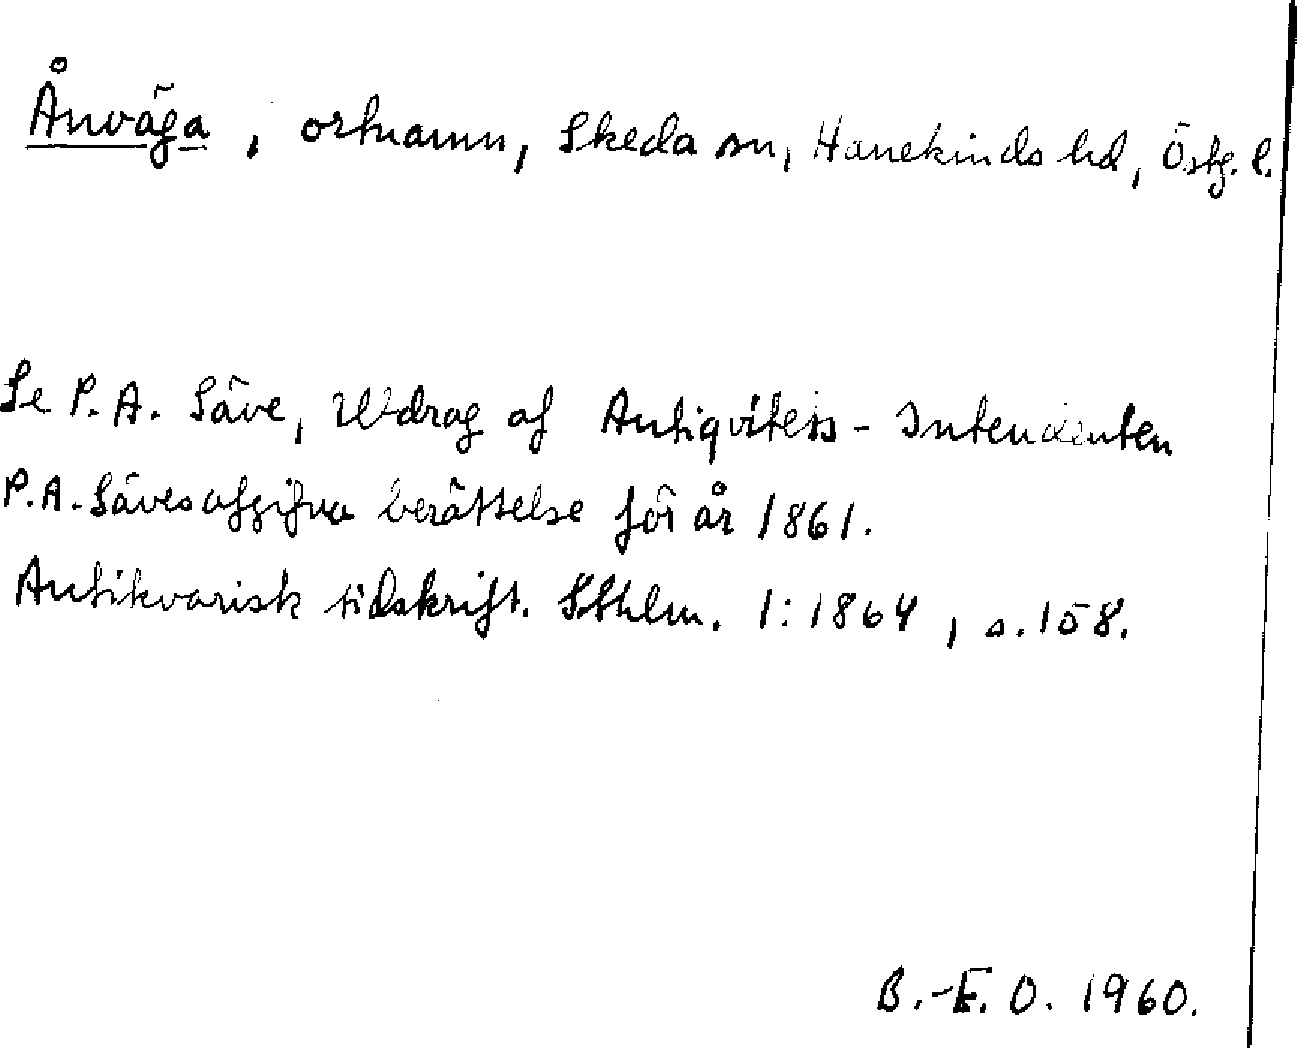 Ånväga, ortnamn, Skeda sn, Hanekinds hd, Östg. l.
Se P. A. Säve, Utdrag af Antiqvitets-Intendenten
P. A. Säves afgifna berättelse för år 1861.
Antikvarisk tidskrift. Sthlm. 1:1864, s. 158.
B.-E. O. 1960.